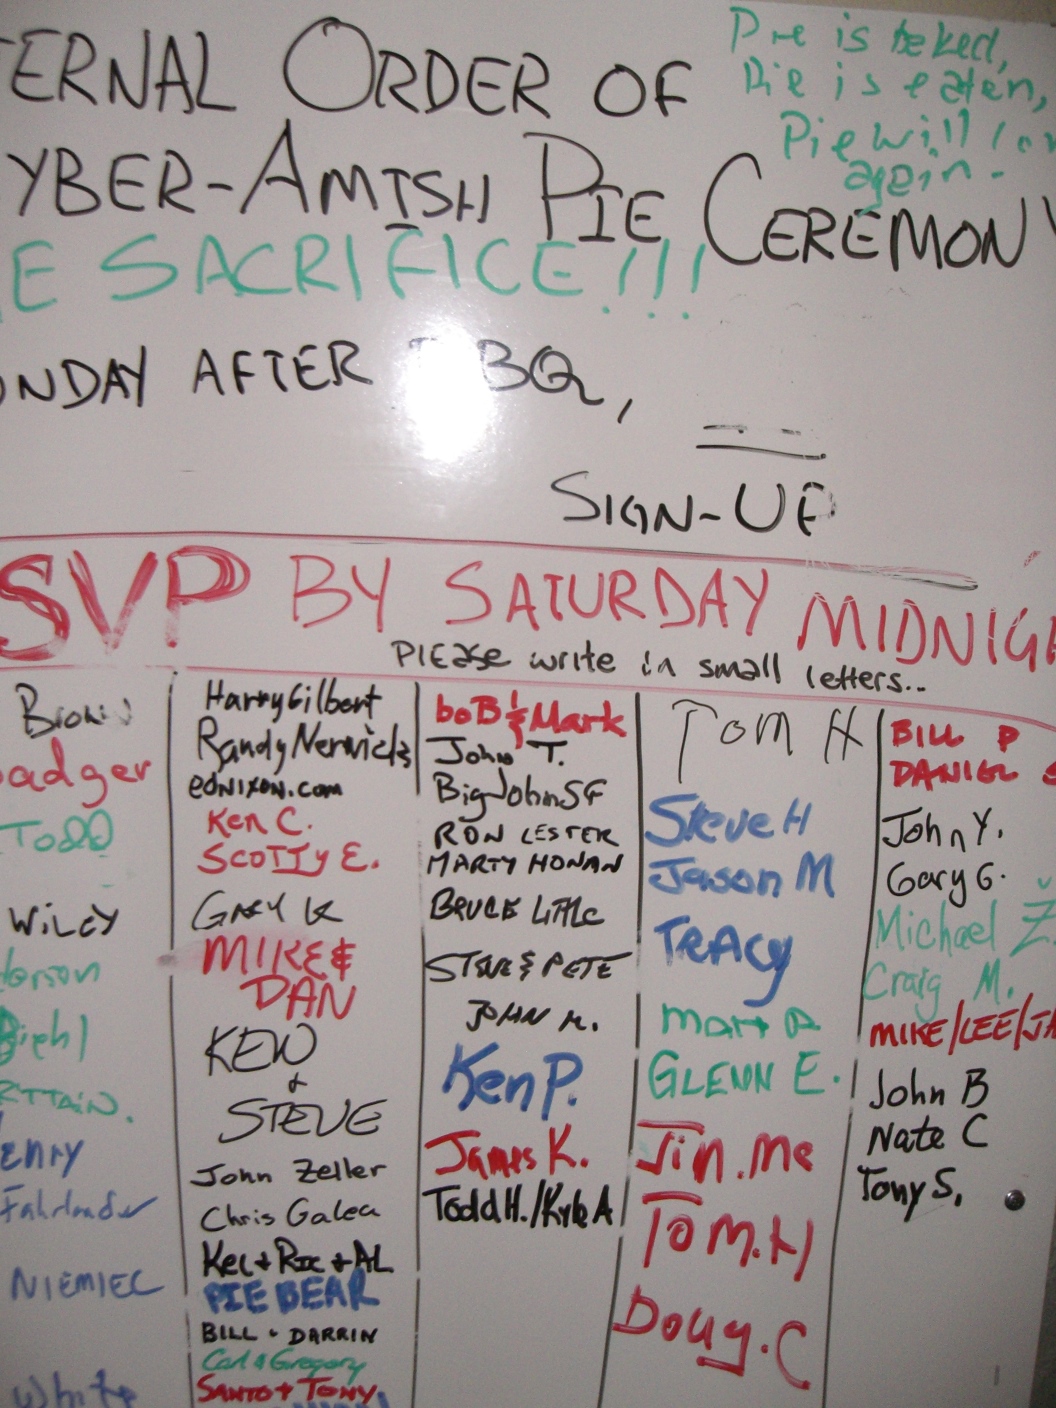 ERNAL ORDER OF
YBER-AMISH PIE CEREMONY
Pie is baked,
Pie is eaten,
Pie will
again.
E SACRIFICE!!!
ONDAY AFTER BBQ,
SIGN-UP
SVP BY SATURDAY MIDNIGH
PlEase write in small letters..
Brown
adger
TODD
WILEY
erson
Biehl
RITTAIN.
enry
Fahrlander
NIEMIEC
White
Harry Gilbert
Randy Nerwicks
edNixon.com
Ken C.
SCOTTY E.
GARY K
MIKE &
DAN
KEN
&
STEVE
John Zeller
Chris Galea
Kel + Ric + AL
PIE BEAR
BILL + DARRIN
Carl & Gregory
SANTO + TONY
boB & Mark
John T.
Big John SF
RON LESTER
MARTY HONAN
BRUCE LittLe
STEVE & PETE
JOHN M.
Ken P.
James K.
Todd H./Kyle A
Tom H
Steve H
Jason M
TRACY
Matt D.
GLENN E.
Jim. Me
TOM. H
Doug. C
BILL P
DANIEL S
John Y.
Gary G.
Michael Ž.
Craig M.
MIKE/LEE/JA
John B
Nate C
Tony S.